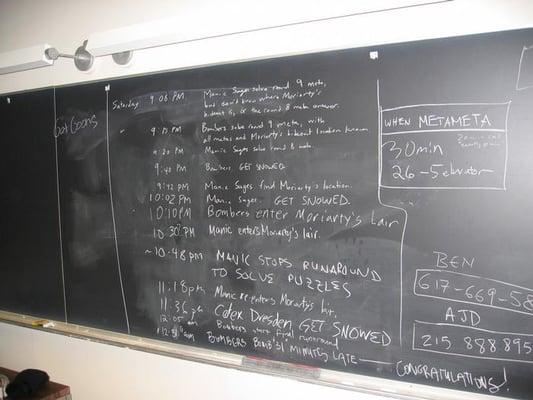 Got Goons
Saturday 9:06 PM Manic Sages solve round 9 meta,
but don't know where Moriarty's
hideout is, or the round 8 meta answer.
9:15 PM Bombers solve round 9 meta, with
all metas and Moriarty's hideout location known.
9:20 PM Manic Sages solve round 8 meta.
9:40 PM Bombers GET SNOWED.
9:42 PM Manic Sages find Moriarty's location.
10:02 PM Manic Sages GET SNOWED.
10:10 PM Bombers enter Moriarty's Lair
10:30 PM Manic enters Moriarty's lair.
~10:48 PM MANIC STOPS RUNAROUND
TO SOLVE PUZZLES
11:18 pm Manic re-enters Moriarty's lair.
11:36 pm Codex Dresden GET SNOWED
12:05 am Bombers start final runaround
BOMBERS 31 MINUTES LATE — CONGRATULATIONS!
WHEN METAMETA
30 min
26-5
BEN
617-669-58
AJD
215 888 895